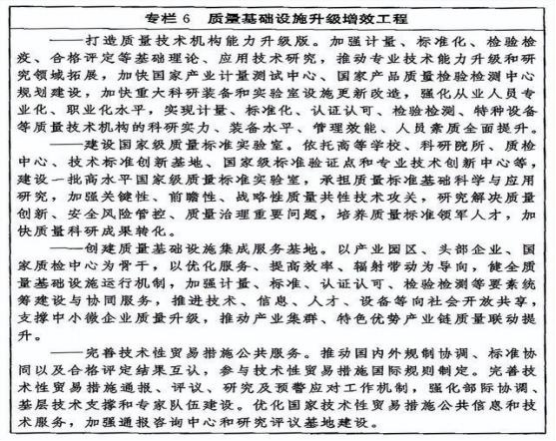 专栏 6 质量基础设施升级增效工程
——打造质量技术机构能力升级版。加强计量、标准化、检验检
疫、合格评定等基础理论、应用技术研究，推动专业技术能力升级和研
究领域拓展，加快国家产业计量测试中心、国家产品质量检验检测中心
规划建设，加快重大科研装备和实验室设施更新改造，强化从业人员专
业化、职业化水平，实现计量、标准化、认证认可、检验检测、特种设备
等质量技术机构的科研实力、装备水平、管理效能、人员素质全面提升。
——建设国家级质量标准实验室。依托高等学校、科研院所、质检
中心、技术标准创新基地、国家级标准验证点和专业技术创新中心等，
建设一批高水平国家级质量标准实验室，承担质量标准基础科学与应用
研究，加强关键性、前瞻性、战略性质量共性技术攻关，研究解决质量
创新、安全风险管控、质量治理重要问题，培养质量标准领军人才，加
快质量科研成果转化。
——创建质量基础设施集成服务基地。以产业园区、头部企业、国
家质检中心为骨干，以优化服务、提高效率、辐射带动为导向，健全质
量基础设施运行机制，加强计量、标准、认证认可、检验检测等要素统
筹建设与协同服务，推进技术、信息、人才、设备等向社会开放共享，
支撑中小微企业质量升级，推动产业集群、特色优势产业链质量联动提
升。
——完善技术性贸易措施公共服务。推动国内外规制协调、标准协
同以及合格评定结果互认，参与技术性贸易措施国际规则制定。完善技
术性贸易措施通报、评议、研究及预警应对工作机制，强化部际协调、
基层技术支撑和专家队伍建设。优化国家技术性贸易措施公共信息和技
术服务，加强通报咨询中心和研究评议基地建设。